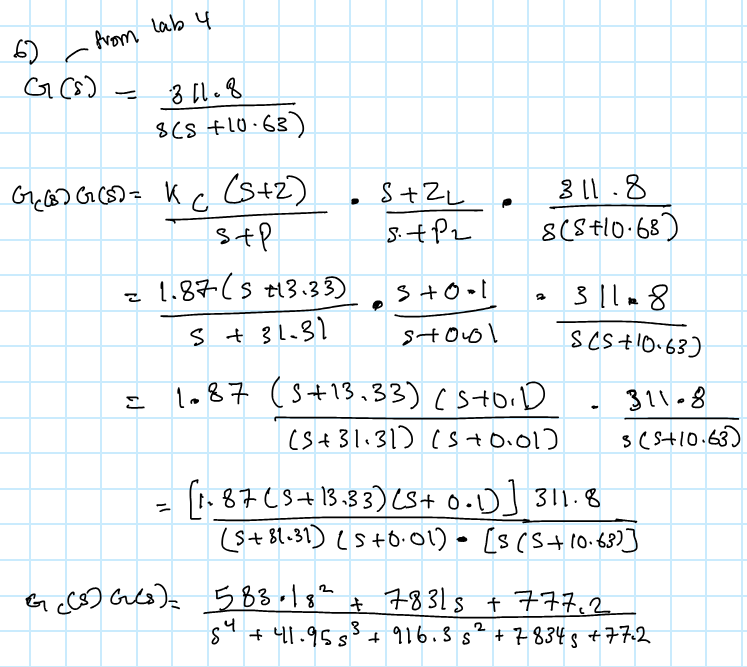 from lab 4
6)
G(s) = 311.8 / s(s+10.63)
Gc(s) G(s) = Kc (s+z) / s+p · s+zL / s+pL · 311.8 / s(s+10.63)
= 1.87(s+13.33) / s + 31.31 · s+0.1 / s+0.01 · 311.8 / s(s+10.63)
= 1.87 (s+13.33) (s+0.1) / (s+31.31) (s+0.01) · 311.8 / s(s+10.63)
= [1.87(s+13.33)(s+0.1)] 311.8 / (s+31.31) (s+0.01) · [s(s+10.63)]
Gc(s) G(s) = 583.1s² + 7831s + 777.2 / s⁴ + 41.95s³ + 916.3s² + 7834s + 777.2